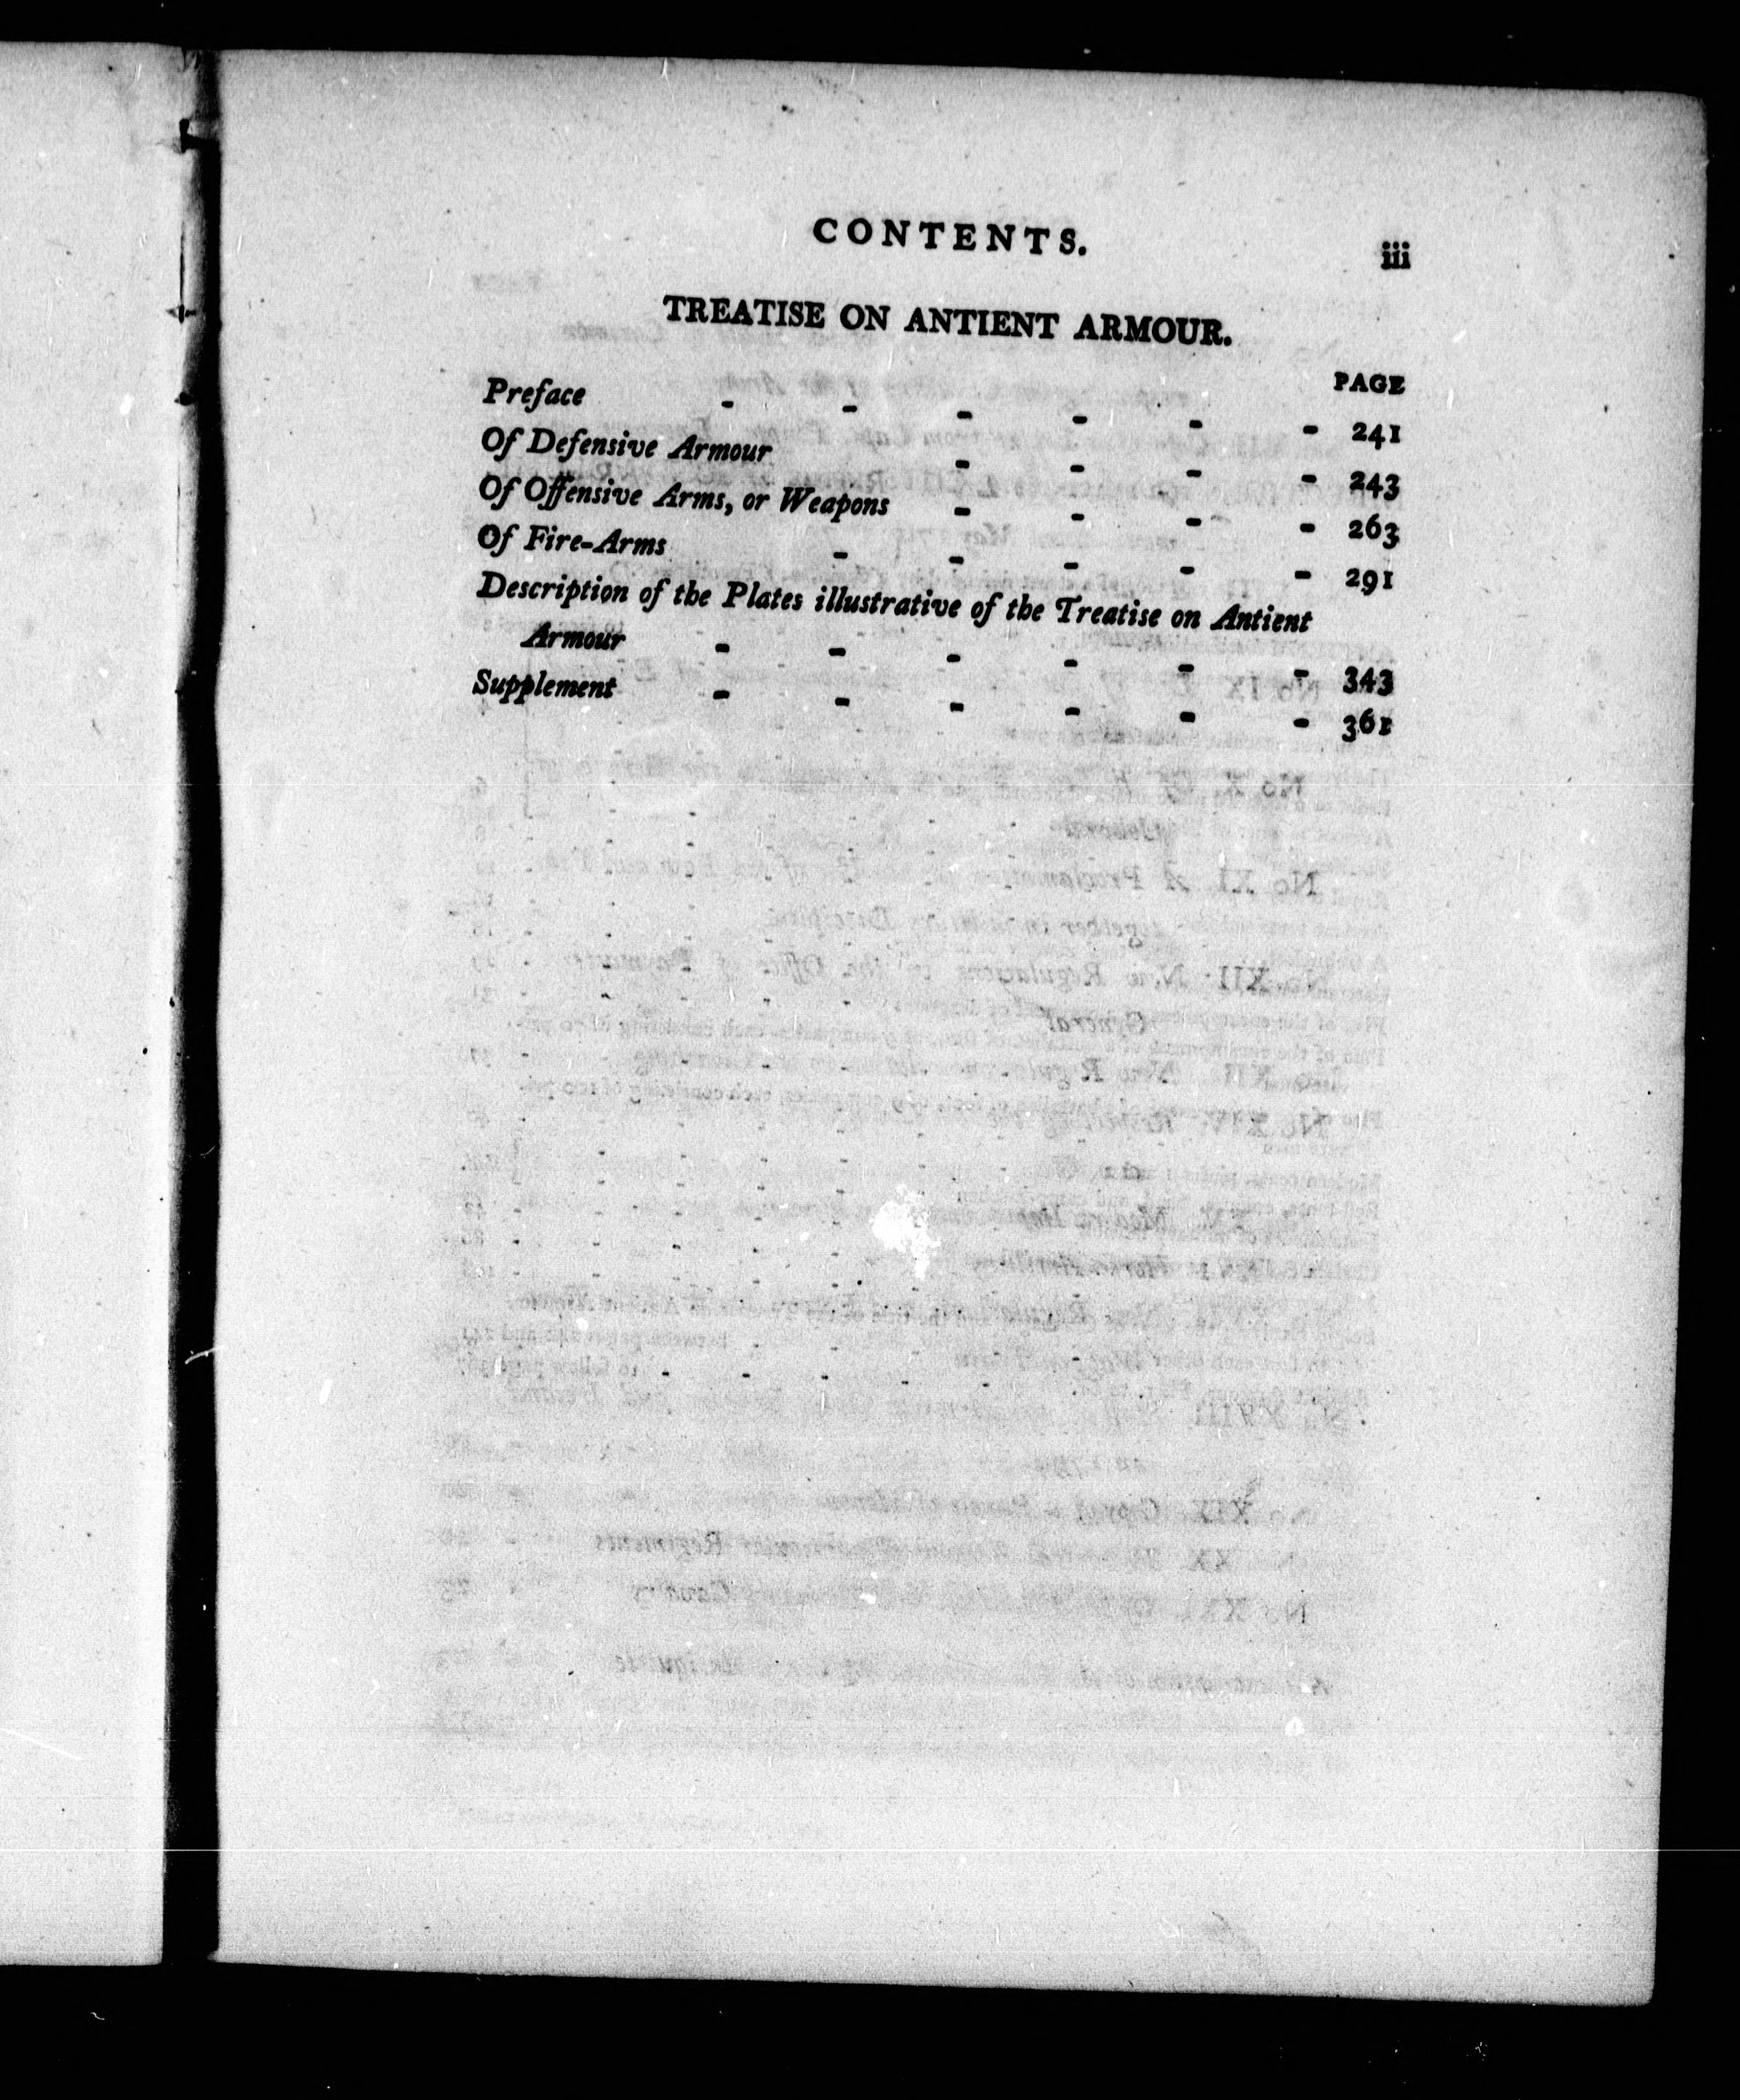 CONTENTS. iii
TREATISE ON ANTIENT ARMOUR.
PAGE
Preface - - - - - - 241
Of Defensive Armour - - - - 243
Of Offensive Arms, or Weapons - - - - 263
Of Fire-Arms - - - - - 291
Description of the Plates illustrative of the Treatise on Antient
Armour - - - - - - 343
Supplement - - - - - - 361